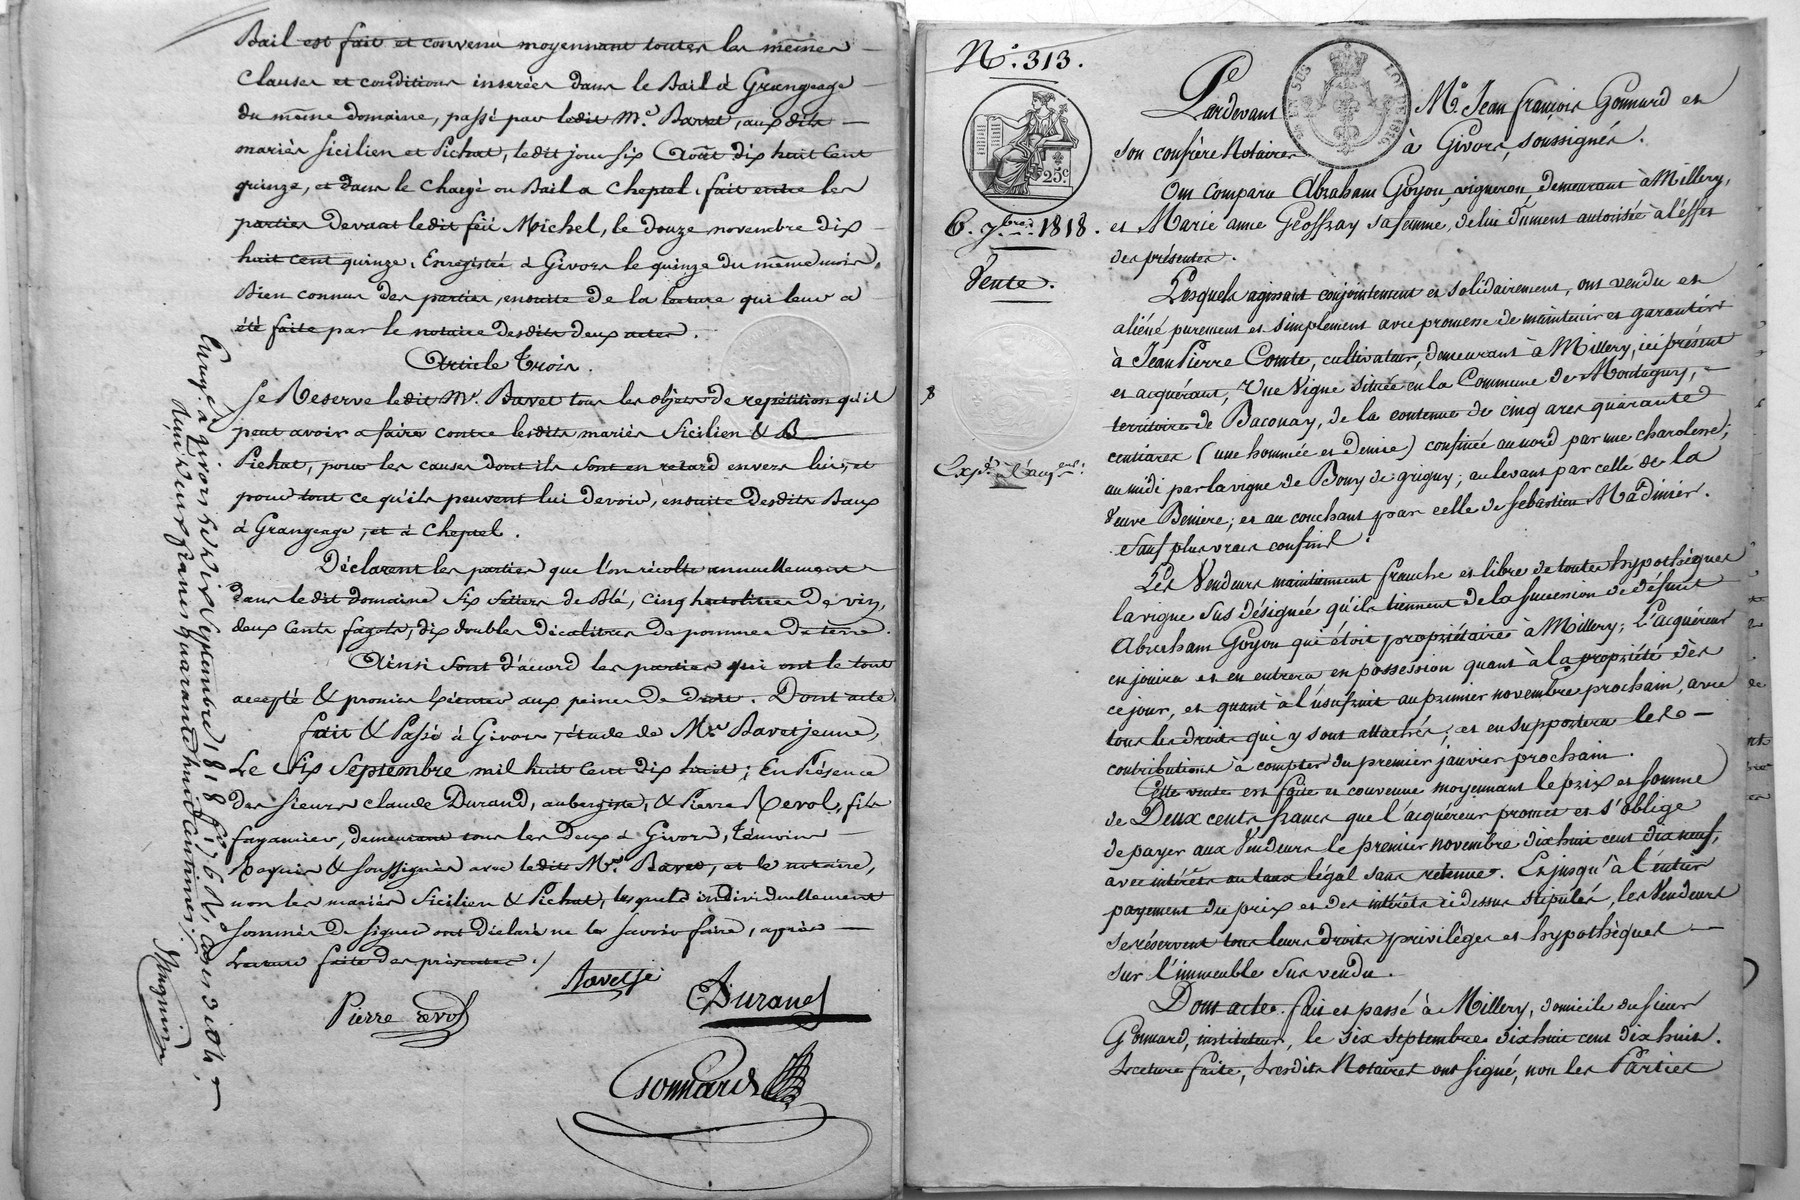 Bail est fait et convenu moyennant toutes les mêmes
clauses et conditions inserées dans le Bail à Grangeage
du même domaine, passé par ledit Mr. Bavet, aux dits
mariés Sicilien et Pichat, ledit jour six Août dix huit Cent
quinze, et dans le Chargé ou Bail a Cheptel, fait entre les
parties devant ledit feû Michel, le douze novembre dix
huit cent quinze, Enregistrée à Givors le quinze du même mois,
Bien connus des parties, ensuite de la lecture qui leur a
été faite par le notaire desdits deux actes.
Article Trois.
Se Reserve ledit Mr. Bavet tous les objets de repétition qu'il
peut avoir a faire contre lesdits mariés Sicilien &
Pichat, pour les causes dont ils sont en retard envers lui, et
pour tout ce qu'ils peuvent lui devoir, ensuite desdits Baux
à Grangeage, et à Cheptel.
Déclarent les parties que l'on récolte annuellement
dans ledit domaine Six Setiers de Blé, cinq hectolitres de vin,
deux Cents fagots, dix doubles décalitres de pommes de terre.
Ainsi sont d'accord les parties qui ont le tout
accepté & promis Exécuter aux peines de droit. Dont acte
fait & Passé à Givors, étude de Mr. Bavet jeune,
Le Six Septembre mil huit Cent dix huit; En Présence
des sieurs claude Durand, aubergiste, & Pierre Revol, fils
fayancier, demeurant tous les deux à Givors, témoins
Requis & soussignés avec ledit Mr. Bavet, et le notaire,
non les mariés Sicilien & Pichat, lesquels individuellement
sommés de signer ont déclaré ne le savoir faire, après
Lecture faite des présentes ./.
Bavet je
Pierre Revol
C Durand
Gonnard
Enreg.é à givors le dix Septembre 1818 f.o 76 R.o, cases 3 et 4,
Reçu deux francs quarante huit centimes.
N.o 313.
25.c
6. 7.bre 1818.
Vente.
Exp.on à l'acq.eur
EN SUS
LOI DE 1816
Pardevant M.e Jean françois Gonnard et
son confrère Notaires à Givors, soussignés.
Ont comparu Abraham Goyon, vigneron, demeurant à Millery,
et Marie anne Geoffray sa femme, de lui dûment autorisée à l'effet
des présentes.
Lesquels agissant conjointement et solidairement, ont vendu et
aliéné purement et simplement avec promesse de maintenir et garantir
à Jean Pierre Comte, cultivateur, demeurant à Millery, ici présent
et acquérant, Une Vigne située en la Commune de Montagny,
territoire de Baconay, de la contenue de cinq ares quarante
centiares (une hommée et demie) confinée au nord par une charolesse;
au midi par la vigne de Bony de grigny; au levant par celle de la
Veuve Beniere; et au couchant par celle de Sebastien Madinier.
Sauf plus vrais confins.
Les Vendeurs maintiennent franche et libre de toutes hypothèques
la vigne sus désignée qu'ils tiennent de la succession de défunt
Abraham Goyon qui étoit propriétaire à Millery; L'acquéreur
en jouira et en entrera en possession quant à la propriété dès
ce jour, et quant à l'usufruit au premier novembre prochain, avec
tous les droits qui y sont attachés; et en supportera les
contributions à compter du premier janvier prochain.
Cette vente est faite et convenue moyennant le prix et somme
de Deux cents francs que l'acquéreur promet et s'oblige
de payer aux Vendeurs le premier novembre dix huit cent dix neuf,
avec intérêts au taux légal sans retenue. Et jusqu'à l'entier
payement du prix et des intérêts ci dessus stipulés, les Vendeurs
se réservent tous leurs droits privilèges et hypothèques
sur l'immeuble sus vendu.
Dont acte. fait et passé à Millery, domicile du sieur
Gonnard, instituteur, le six septembre dix huit cent dix huit.
Lecture faite, Lesdits Notaires ont signé, non les Parties